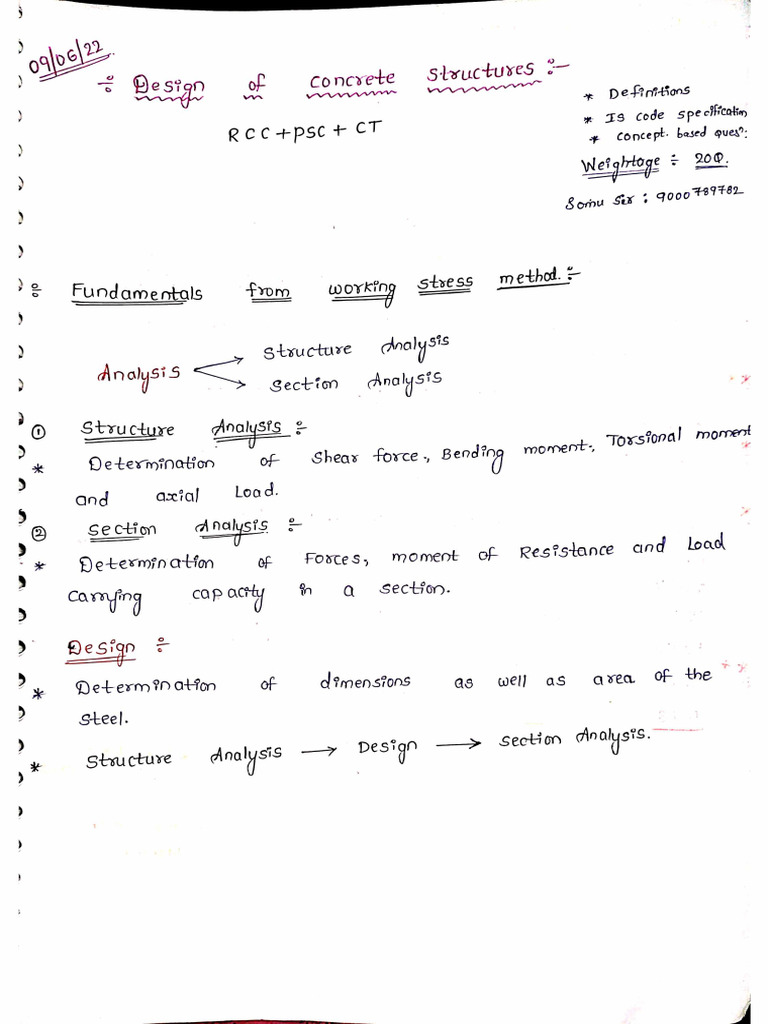 09/06/22
÷ Design of concrete structures :-
RCC+PSC+CT
* Definitions
* IS code specification
* concept. based ques:
Weightage ÷ 20Q.
Somu Sir : 9000789782
÷ Fundamentals from working stress method.÷
Analysis
Structure Analysis
Section Analysis
① Structure Analysis ÷
* Determination of Shear force., Bending moment., Torsional moment
and axial Load.
② Section Analysis ÷
* Determination of Forces, moment of Resistance and Load
Carrying capacity in a section.
Design ÷
* Determination of dimensions as well as area of the
Steel.
* Structure Analysis → Design → Section Analysis.